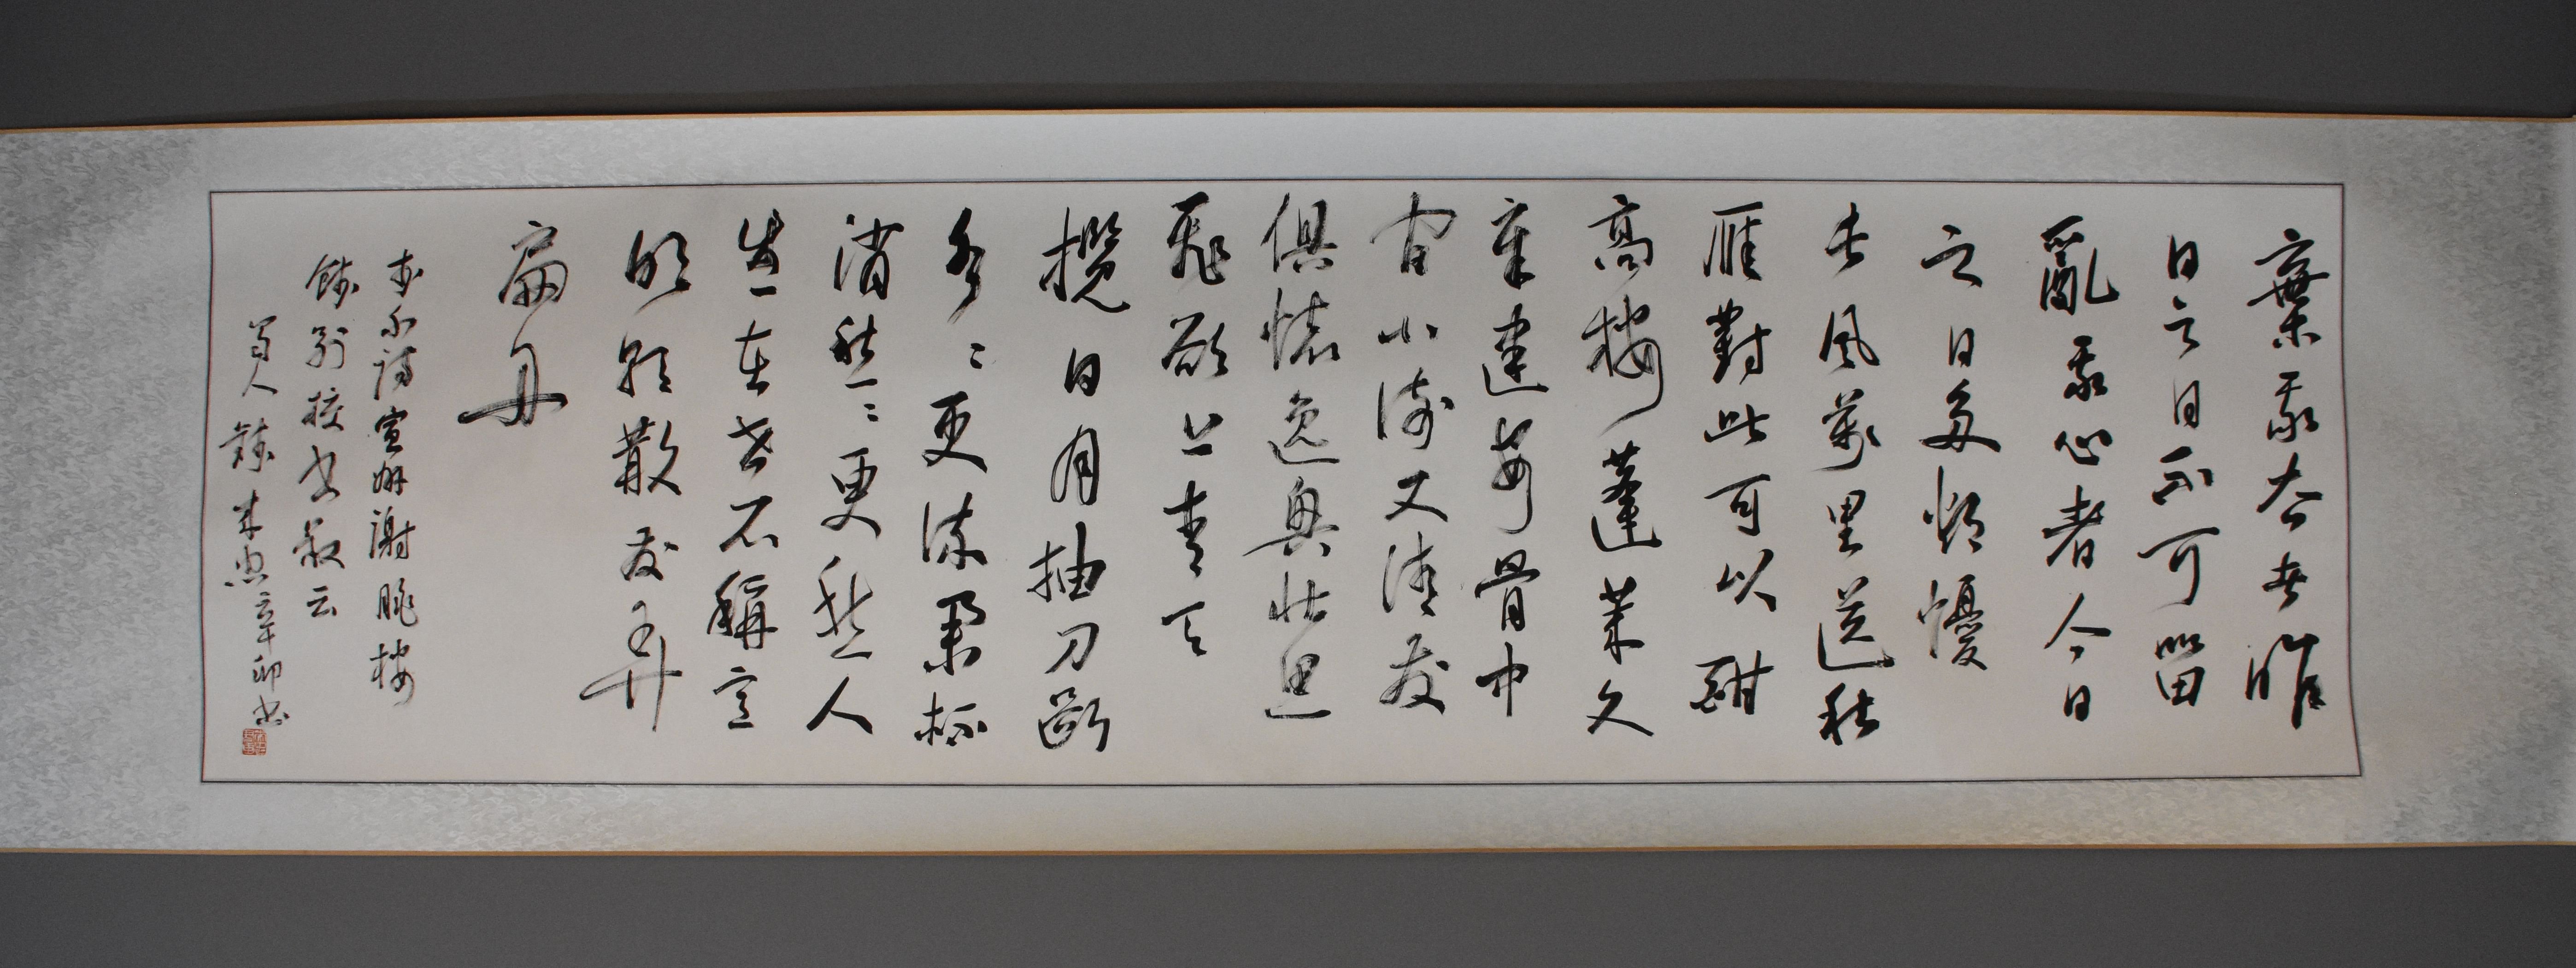 棄我去者昨
日之日不可留
亂我心者今日
之日多煩懮
長風萬里送秋
雁對此可以酣
高樓蓬萊文
章建安骨中
間小謝又清發
俱懷逸興壯思
飛欲上青天
攬日月抽刀斷
水〻更流舉杯
消愁〻更愁人
生在世不稱意
明朝散發弄
扁舟
李白詩宣州謝朓樓
餞別校書叔云
蜀人錢来忠辛卯書